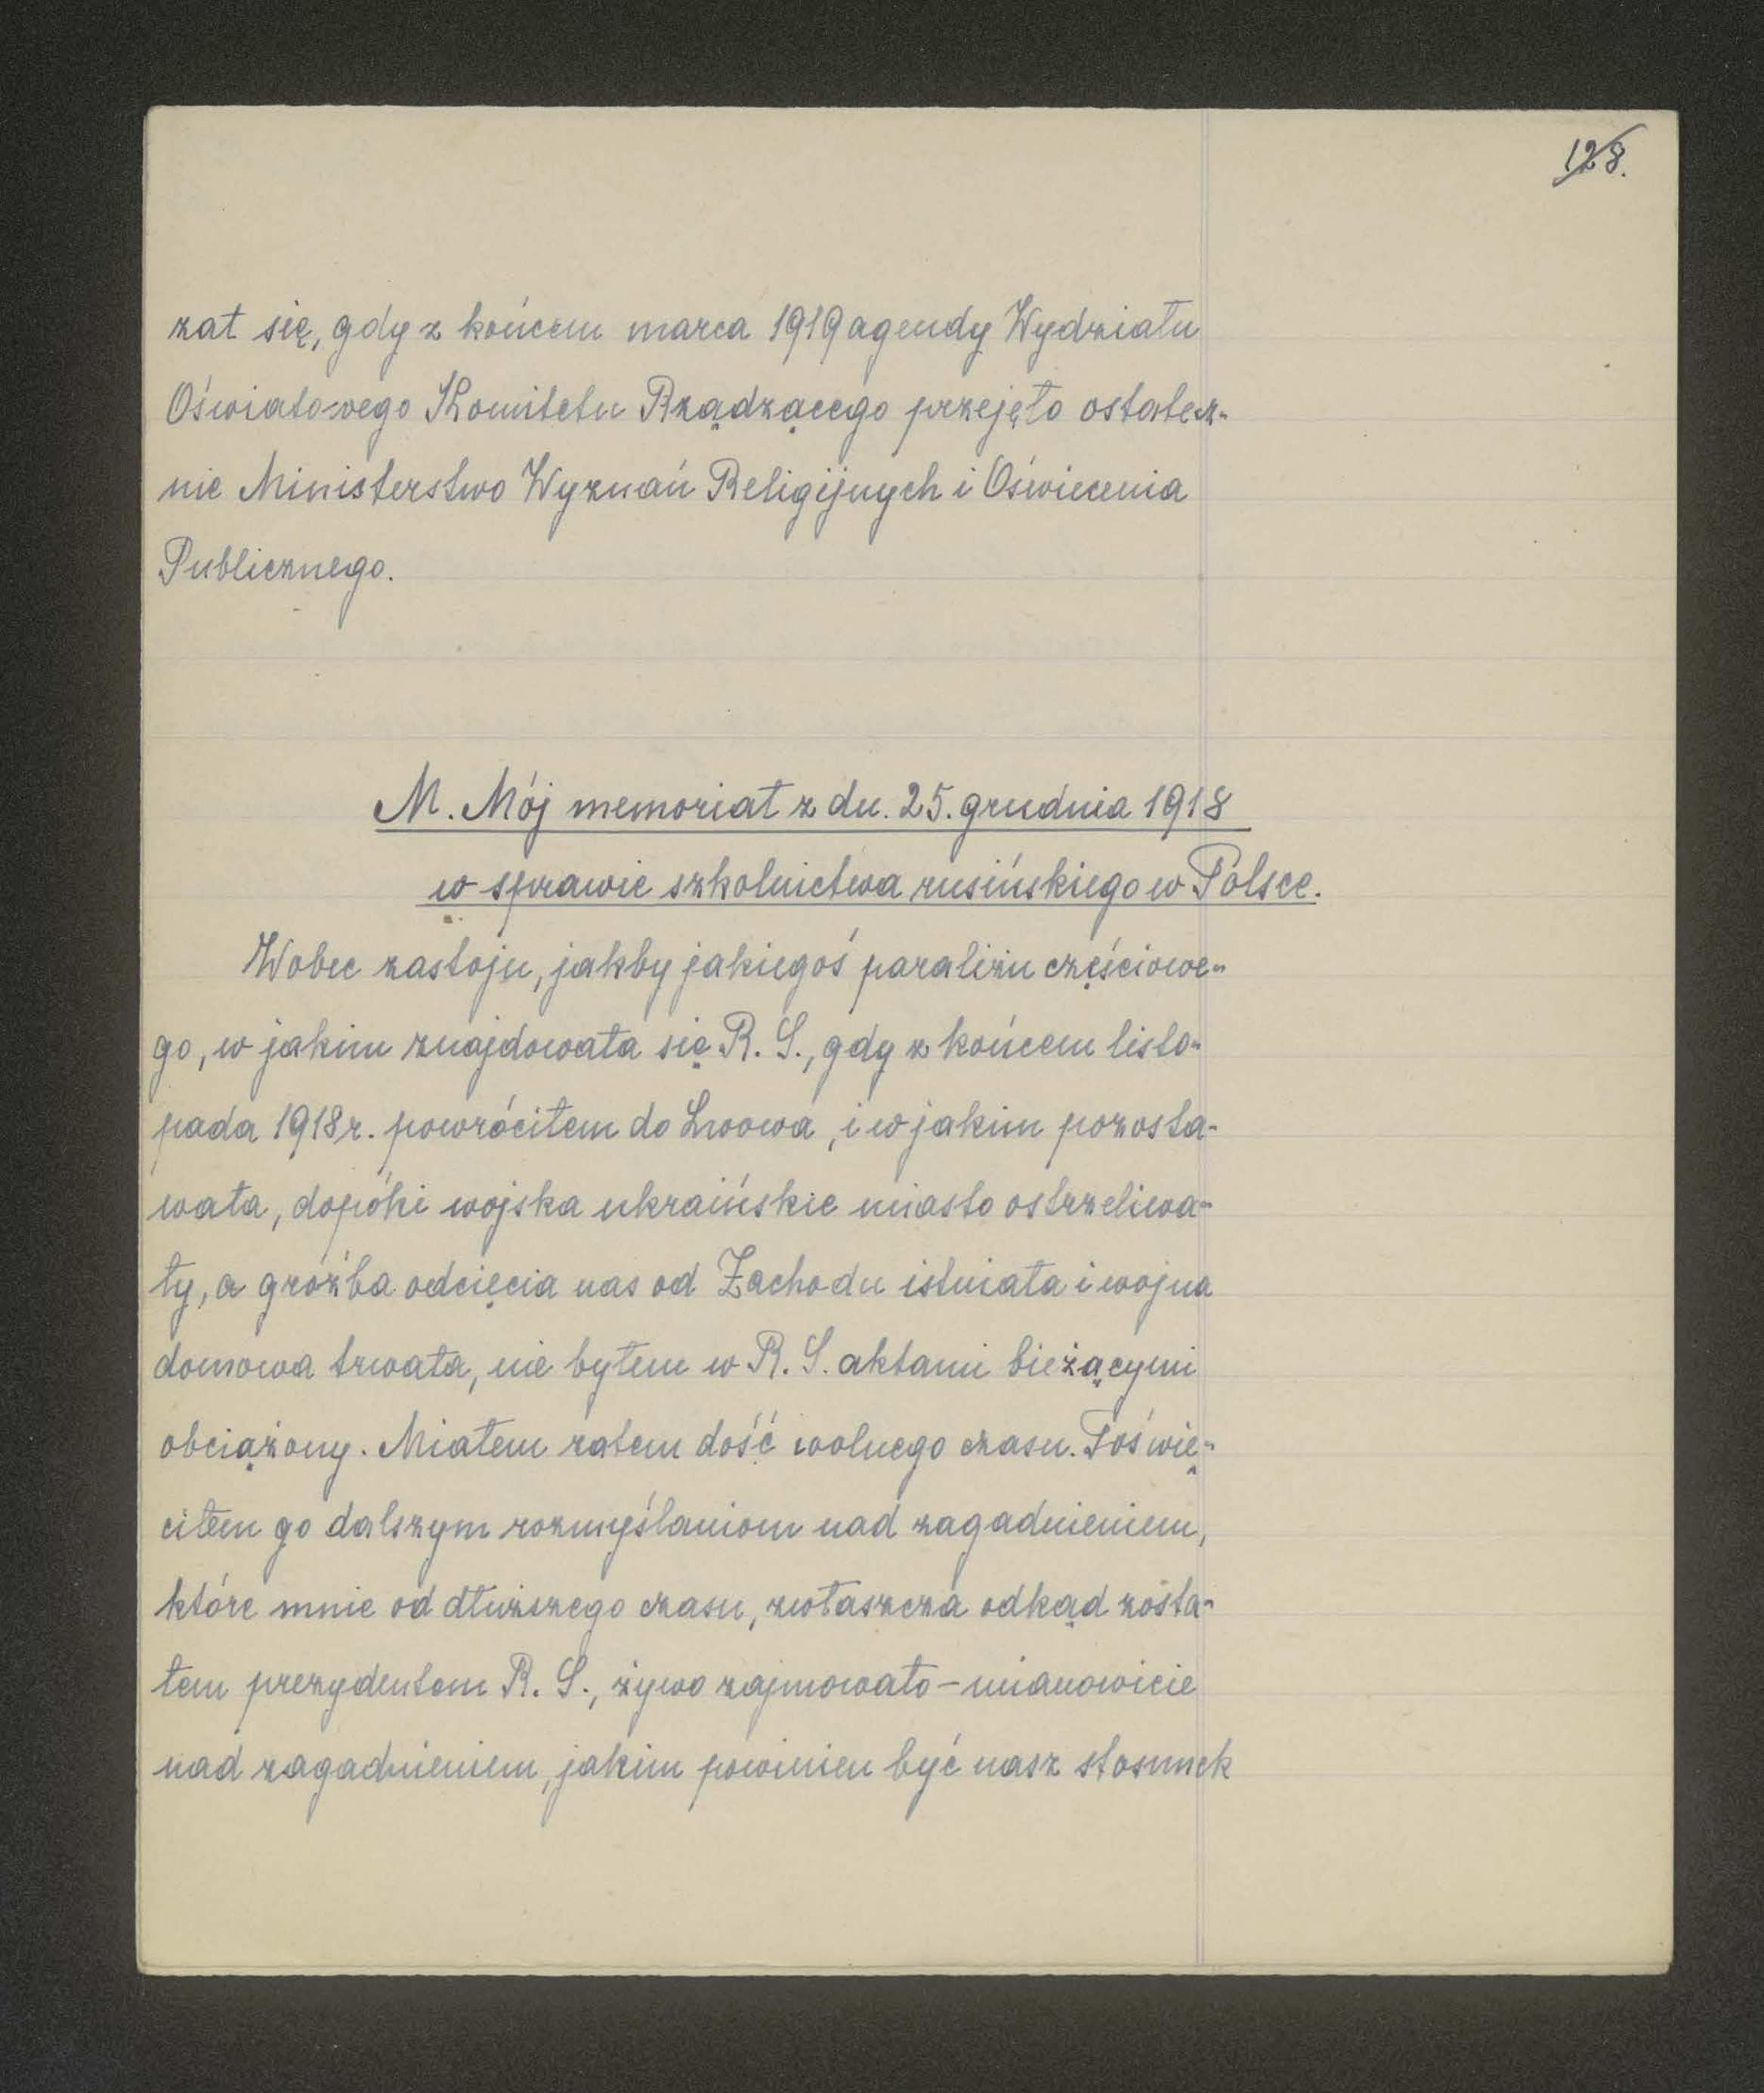 128.
zał się, gdy z końcem marca 1919 agendy Wydziału
Oświatowego Komitetu Rządzącego przejęło ostatecz-
nie Ministerstwo Wyznań Religijnych i Oświecenia
Publicznego.
M. Mój memoriał z dn. 25. grudnia 1918
w sprawie szkolnictwa rusińskiego w Polsce.
Wobec zastoju, jakby jakiegoś paraliżu częściowe-
go, w jakim znajdowała się R. S., gdy z końcem listo-
pada 1918 r. powróciłem do Lwowa, i w jakim pozosta-
wała, dopóki wojska ukraińskie miasto ostrzeliwa-
ły, a groźba odcięcia nas od Zachodu istniała i wojna
domowa trwała, nie byłem w R. S. aktami bieżącymi
obciążony. Miałem zatem dość wolnego czasu. Poświę-
ciłem go dalszym rozmyślaniom nad zagadnieniem,
które mnie od dłuższego czasu, zwłaszcza odkąd zosta-
łem prezydentem R. S., żywo zajmowało - mianowicie
nad zagadnieniem, jakim powinien być nasz stosunek